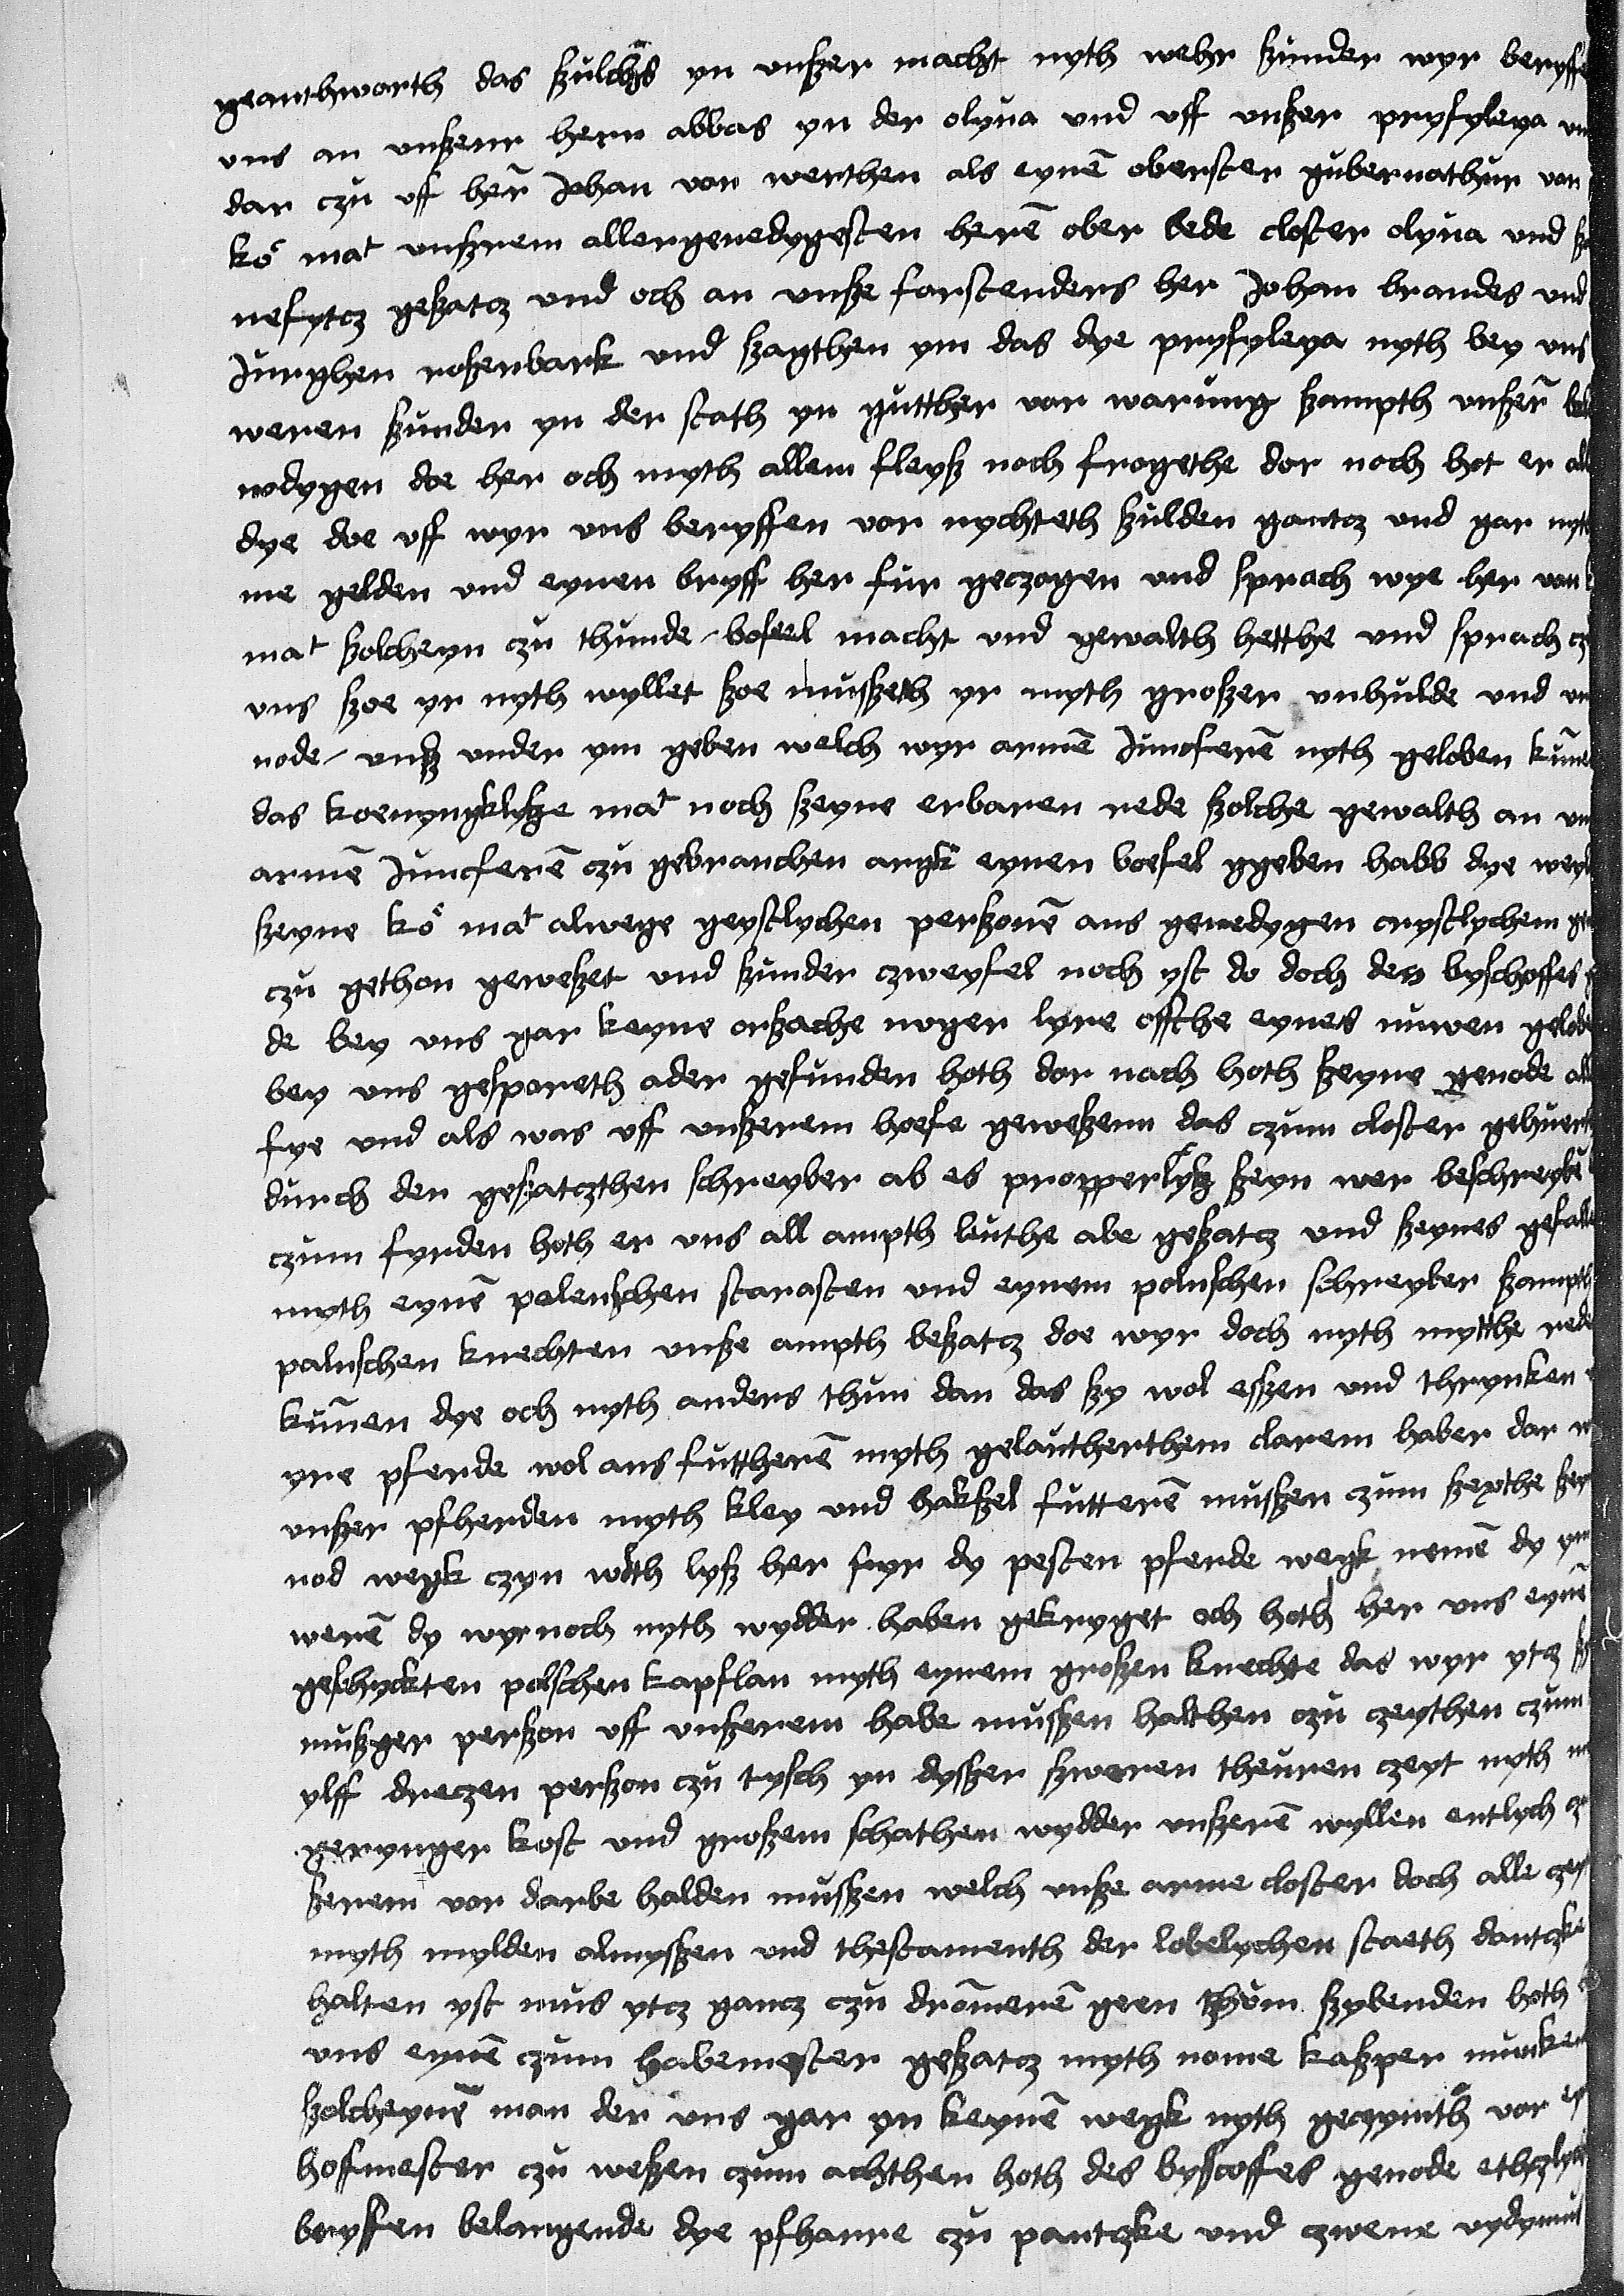 geanthworth das szulchs yn unszer macht nyth wehr szunder wyr beryffe
uns an unszenn hern abbas yn der olyva und uff unszer pryfyleya un
dar czu uff hern Johan von werthen als eynen obersten gubernathur von
ko mat unszrem allergenedygesten heren ober bede closter olyva und
gesatcz und och an unsze forstenders her Johan brandes und
Jurghen roszenbark und szagthen ym das dye pryfyleya nyth bey uns
weren szunder yn der stath yn gutther vor warung szampth unszern
nodygen doe her och myth allem fleysz noch frogethe dor noch hot er
dye doe uff wyr uns beryffen vor nychteth szulden gantcz und gar nyt
me gelden und eynen bryff her fur geczogen und sprach wye her von
mat szolcheyn czu thunde bofeel macht und gewalth hetthe und sprach cz
uns szoe yr nyth wyllet szoe muszeth yr myth groszer unhulde und un
node unsz under ym geben welch wyr armen Junoferen nyth geloben kunen
das koenyngklysze mat noch szeyne erbaren rede szolche gewalth an un
armen Juncferen czu gebrauchen angk eynen boefel ggeben habb dye weyl
szeyne ko mat alwege geystlychen perszonen aus genedygen crystlychem
czu gethon geweszet und szunder czweyfel noch yst do doch des byschoffes
de bey uns gar keyne orszache noger lyre offthe eynes nuwen gelobe
bey uns gesporeth ader gefunden hoth dor noch hoth szeyne genode all
fye und als was uff unszerem hoefe geweszenn das czum closter gehuert
durch den geszatczthen schreyber ab es propperlysz szeyn wer beschreybe
czum fyrden hoth er uns all ampth leuthe abe geszatcz und szeynes gefalle
myth eynen polenschen starasten und eynem polnschen schreyber szampth
polnschen knechten unsze ampth beszatcz doe wyr doch nyth mytthe rede
kunnen dye och nyth anders thun dan das szy wol eszen und thrynken
yre pferde wol aus futtheren myth gelautherthem clarem haber dar
unszer pfherden myth kley und hakszel futteren muszen czum szexthe szey
nod wegk czyn woth lysz her fyr dy pesten pferde wegk nemen dy ym
weren dy wyr noch nyth wydder haben gekryget och hoth her uns eynen
geschyckten polschen kapflan myth eynem groszen knechte das wyr ytcz
muszger perszon uff unszerem habe muszen halthen czu czeythen czum
ylff dreczen perszon czu tysch yn dyszer szweren theuren czeyt nyth
gerynger kost und groszem schathen wydder unszeren wyllen entlych cz
szerem vor darbe halden muszen welch unsze arme closter doch alle czey
myth mylden almyszen und thestamenth der lobelychen staeth dantzke
halten yst mus ytcz gancz czu drommeren geen czum szybenden hoth
uns eynen czum habemester geszatcz myth nome kaszper
szolcheynen man der uns gar yn keynen wegk nyth gecymth vor
hoffmester czu weszen czum achthen hoth des byscoffes genode ethzlych
bryffen belangende dye pfharre czu pantczke und czwene vydymus